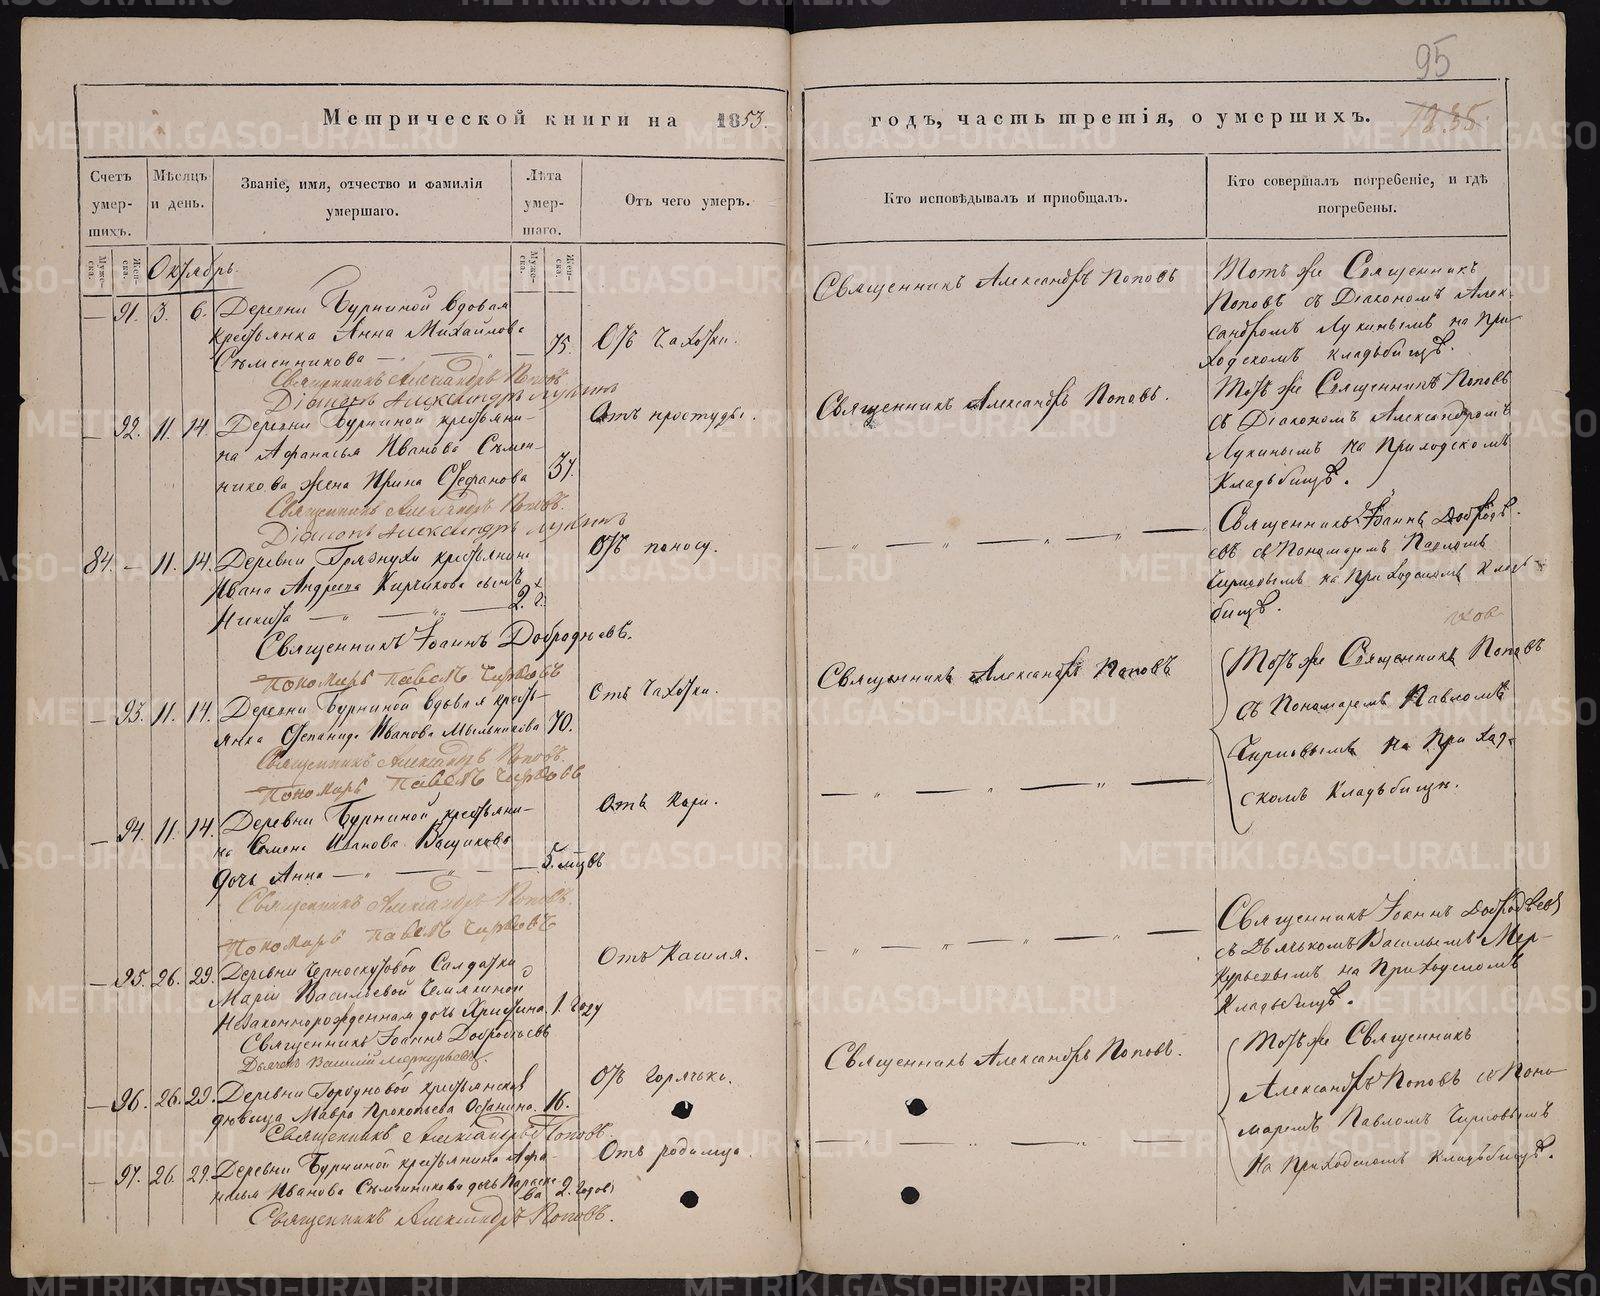 95
Метрической книги на 1853. годъ, часть третія, о умершихъ. 1835.
Счетъ умер-шихъ.
Мѣсяцъ и день.
Званіе, имя, отчество и фамилія умершаго.
Лѣта умер-шаго.
Отъ чего умеръ.
Кто исповѣдывалъ и пріобщалъ.
Кто совершалъ погребеніе, и гдѣ погребены.
Мужеска.
Женска.
Октябрь.
Мужеска.
Женска.
— 91. 3. 6. Деревни Бурниной вдовая
крестьянка Анна Михайлова
Сѣменникова — 75. Отъ Чахотки.
Священникъ Александръ Поповъ
Тотъ же Священникъ
Поповъ съ Діакономъ Алек-
сандромъ Лукинымъ на При-
ходскомъ кладьбищѣ.
Священникъ Александръ Поповъ
Діаконъ Александръ Лукинъ
— 92. 11. 14. Деревни Бурниной крестьяни-
на Афанасья Иванова Сѣмен-
никова жена Ирина Стефанова 37.
Отъ простуды.
Священникъ Александръ Поповъ.
Тотъ же Священникъ Поповъ
съ Діакономъ Александромъ
Лукинымъ на Приходскомъ
Кладьбищѣ.
Священникъ Александръ Поповъ.
Діаконъ Александръ Лукинъ
84. — 11. 14. Деревни Грязнухи крестьянина
Ивана Андреева Кирчикова сынъ
Никита — 2. г.
Отъ поносу.
Священникъ Іоаннъ Доброд
евъ съ Пономаремъ Павломъ
на Приходскомъ Кладь-
бищѣ.
Священникъ Іоаннъ
Пономарь Павелъ
— 93. 11. 14. Деревни Бурниной вдовая кресть-
янка Степанида Иванова Мыльникова 70.
Отъ Чахотки.
Священникъ Александръ Поповъ
Тотъ же Священникъ Поповъ
съ Пономаремъ Павломъ
на Приход-
скомъ Кладьбищѣ.
Священникъ Александръ Поповъ.
Пономарь Павелъ
— 94. 11. 14. Деревни Бурниной крестьяни-
на Семена Иванова
дочь Анна — 5. мцовъ
Отъ Кори.
Священникъ Александръ Поповъ.
Пономарь Павелъ
— 95. 26. 29. Деревни Черноскутовой Солдатки
Маріи Васильевой
Незаконнорожденная дочь Христина 1. году
Отъ Кашля.
Священникъ Іоаннъ
съ Дьячкомъ Васильемъ Мер-
курьевымъ на Приходскомъ
Кладьбищѣ.
Священникъ Іоаннъ
Дьячекъ Василій Меркурьевъ
— 96. 26. 29. Деревни Горбуновой крестьянская
дѣвица Мавра Прокопьева Останина. 16.
Отъ Горячки.
Священникъ Александръ Поповъ.
Тотъ же Священникъ
Александръ Поповъ съ Поно-
маремъ Павломъ
на Приходскомъ Кладьбищѣ.
Священникъ Александръ Поповъ.
— 97. 26. 29. Деревни Бурниной крестьянина Афа-
насья Иванова Сѣменникова дочь Параске-
ва 2. годовъ
Отъ родимца.
Священникъ Александръ Поповъ.
METRIKI.GASO-URAL.RU